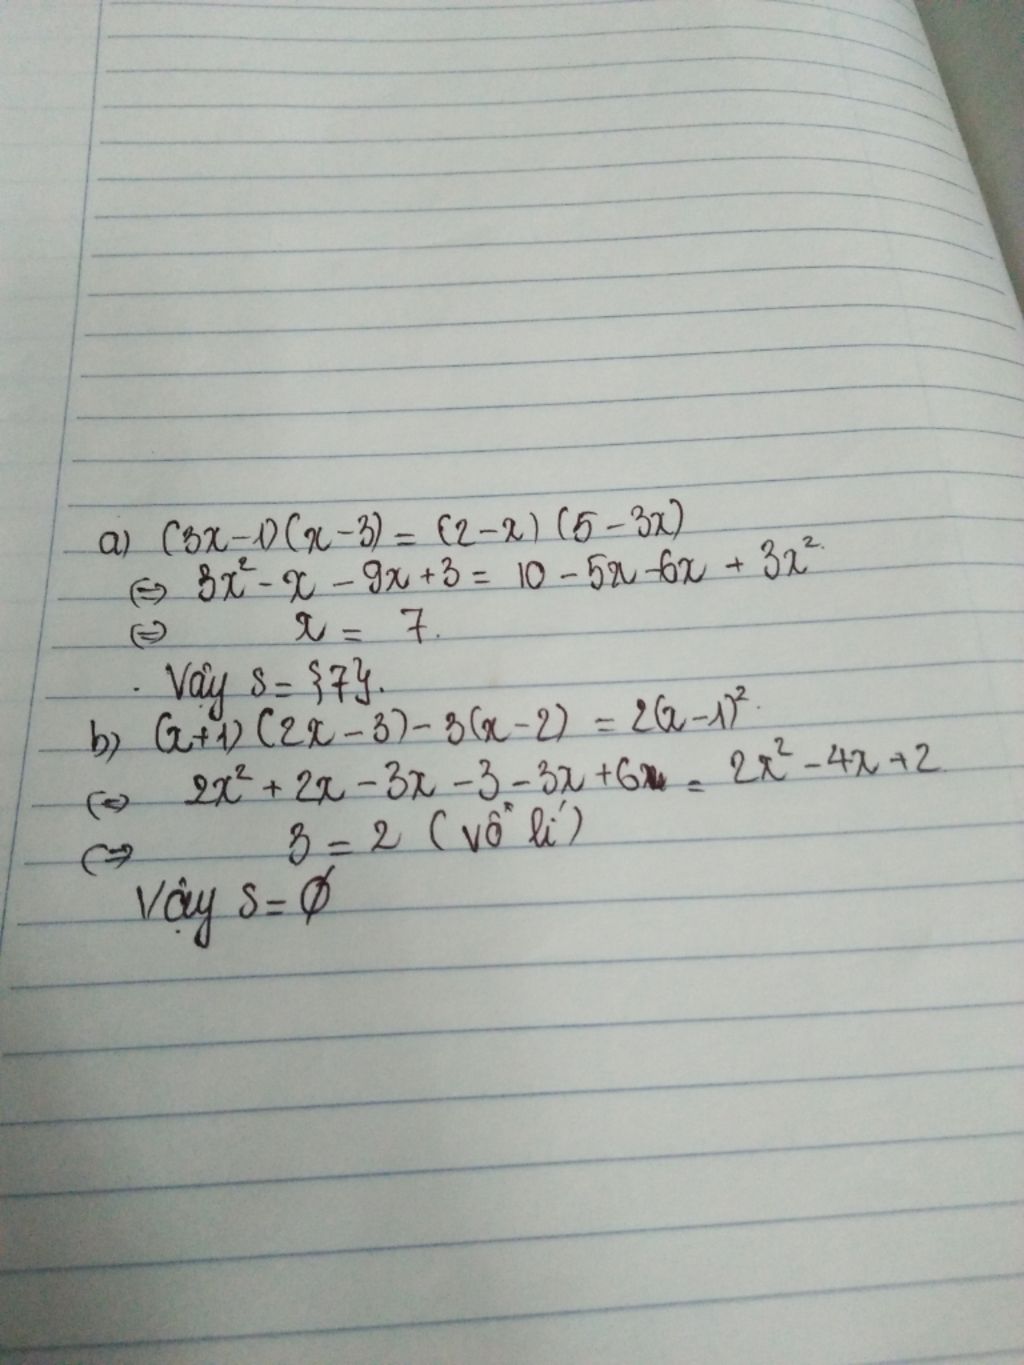 a) (3x-1)(x-3) = (2-x)(5-3x)
⇔ 3x² - x - 9x + 3 = 10 - 5x - 6x + 3x².
⇔ x = 7.
Vậy S = {7}.
b) (x+1)(2x-3) - 3(x-2) = 2(x-1)².
⇔ 2x² + 2x - 3x - 3 - 3x + 6 = 2x² - 4x + 2
⇔ 3 = 2 (vô lí)
Vậy S = ∅